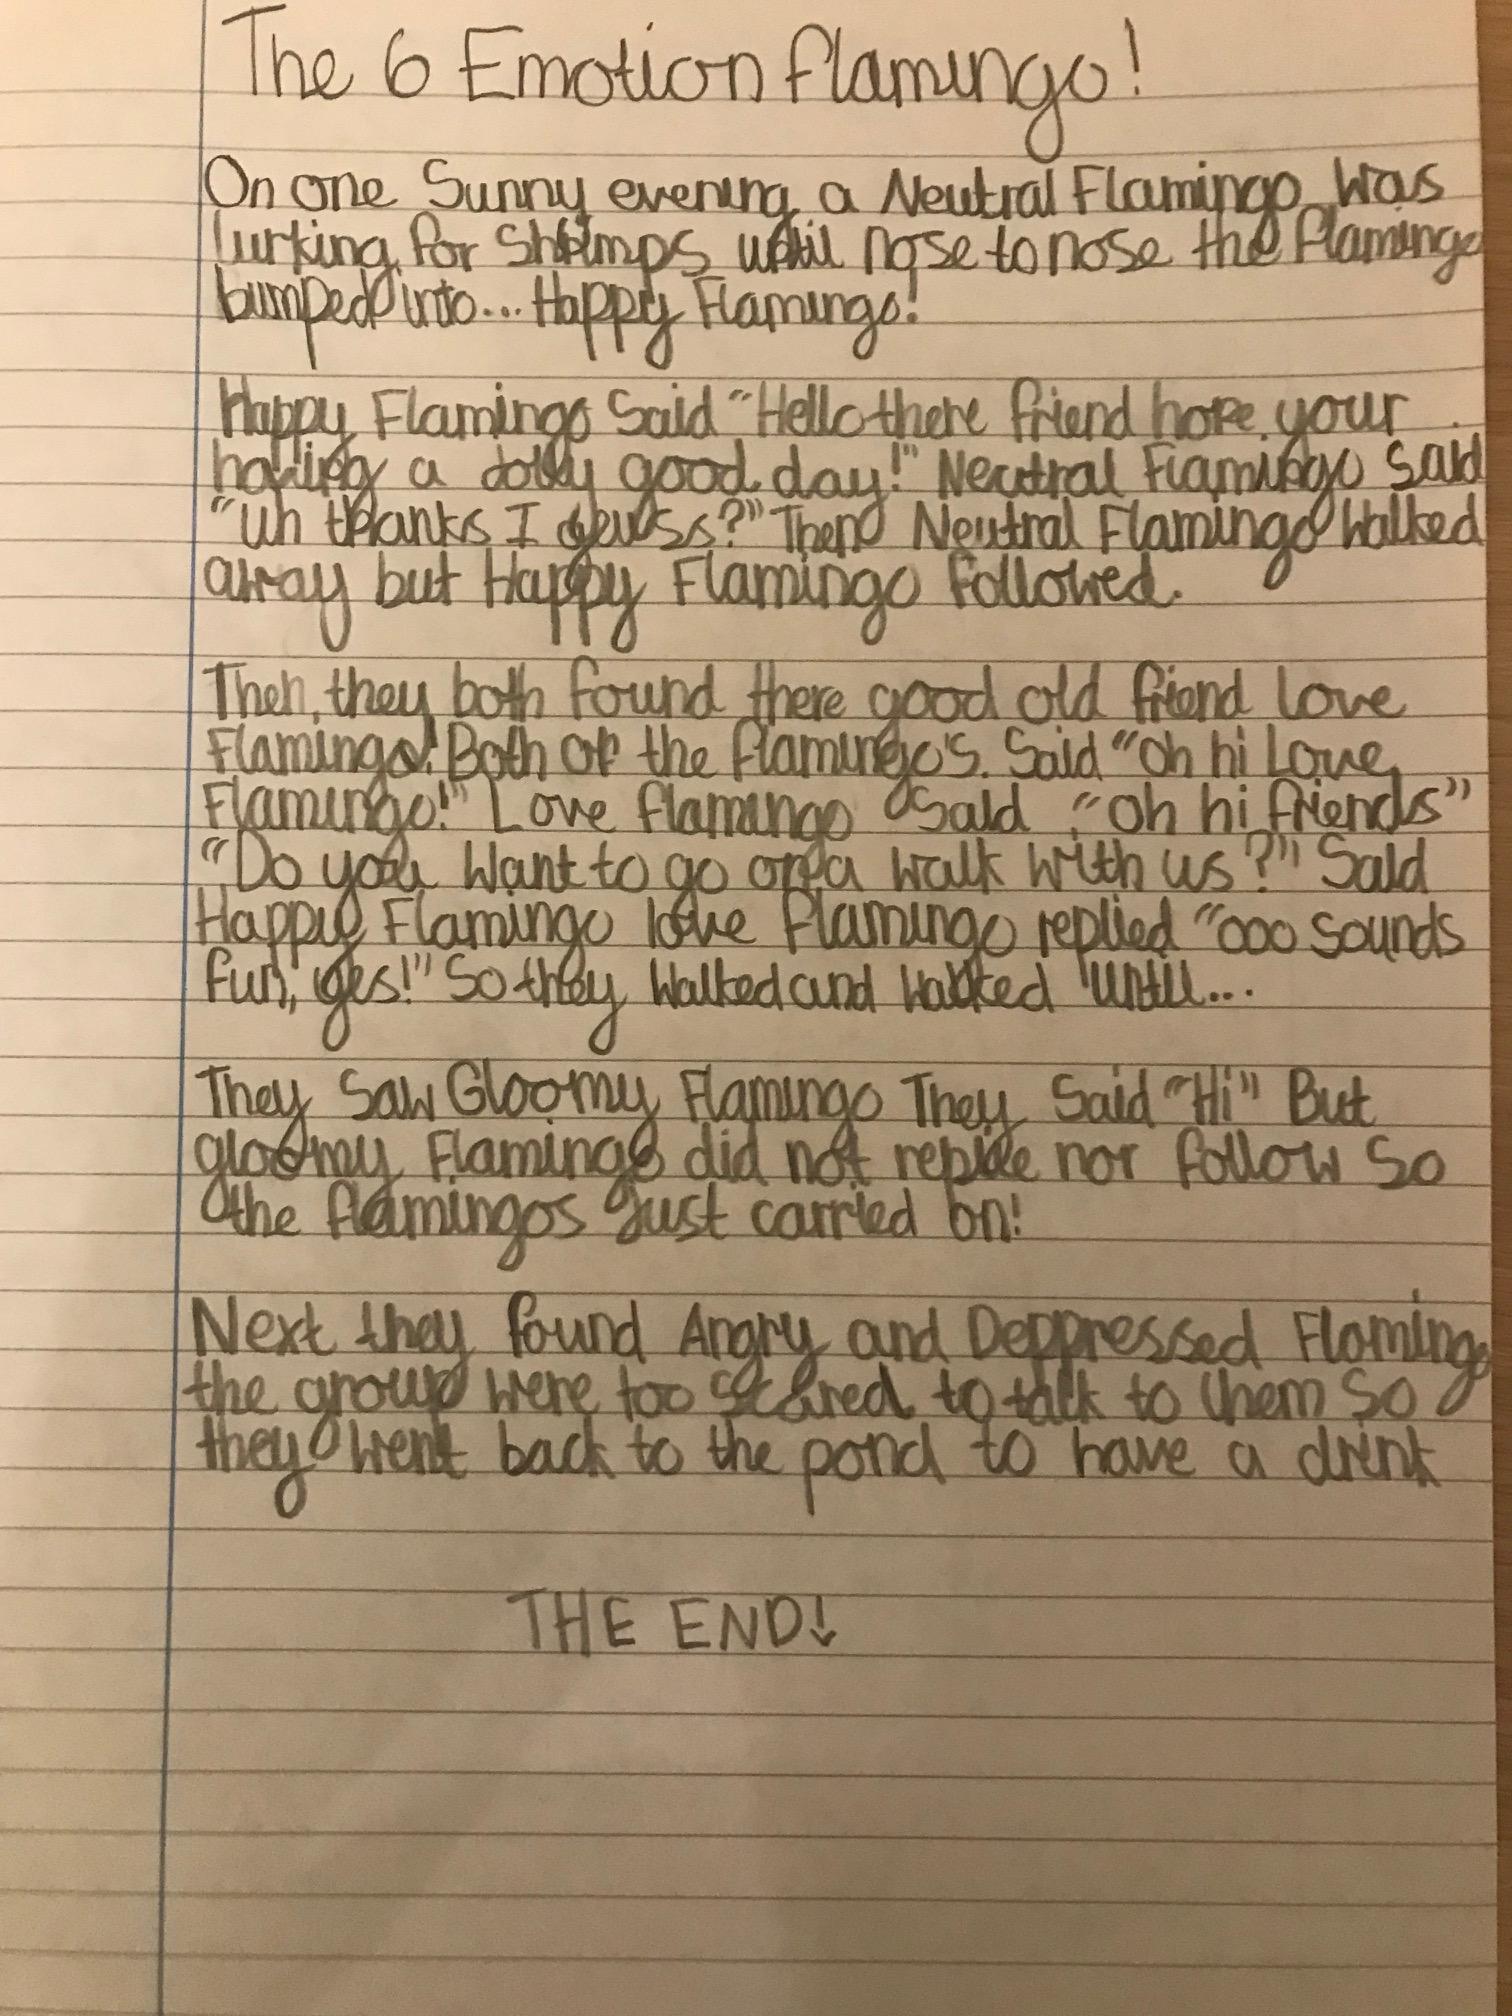 The 6 Emotion Flamingo!
On one Sunny evening a Neutral Flamingo was
lurking for Shrimps until nose to nose the flamingo
bumped into... Happy Flamingo!
Happy Flamingo Said "Hello there friend hope your
having a jolly good day!" Neutral Flamingo said
"uh thanks I guess?" Then Neutral Flamingo walked
away but Happy Flamingo followed.
Then, they both found there good old friend Love
Flamingo! Both of the flamingo's. Said "oh hi Love
Flamingo!" Love flamingo Said, "oh hi friends"
"Do you want to go on a walk with us?" Said
Happy Flamingo love flamingo replied "ooo sounds
fun, yes!" So they walked and walked until...
They Saw Gloomy Flamingo They Said "Hi" But
gloomy Flamingo did not replie nor follow So
the flamingos Just carried on!
Next they found Angry and Deppressed Flamingo
the group were too scared to talk to them So
they went back to the pond to have a drink
THE END!